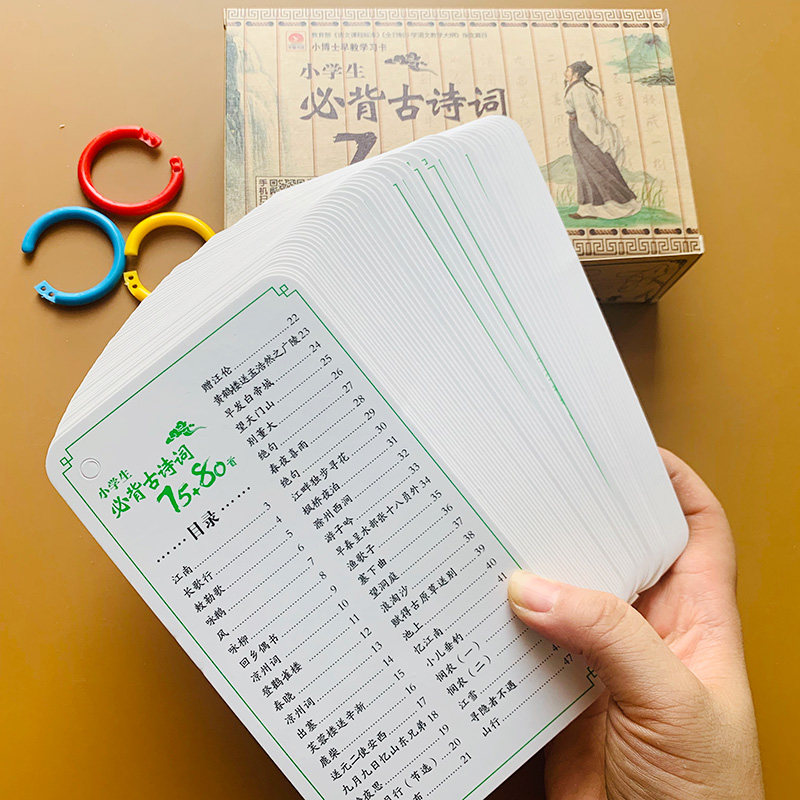 教育部《语文课程标准》《全日制小学语文教学大纲》指定篇目
小博士早教学习卡
小学生
必背古诗词
7
小学生
必背古诗词
75+80首
……目录……
江南 3
长歌行 4
敕勒歌 5
咏鹅 6
风 7
咏柳 8
回乡偶书 9
凉州词 10
登鹳雀楼 11
春晓 12
凉州词 13
出塞 14
芙蓉楼送辛渐 15
鹿柴 16
送元二使安西 17
九月九日忆山东兄弟 18
夜思 19
月行（节选） 20
布 21
赠汪伦 22
黄鹤楼送孟浩然之广陵 23
早发白帝城 24
望天门山 25
别董大 26
绝句 27
春夜喜雨 28
绝句 29
江畔独步寻花 30
枫桥夜泊 31
滁州西涧 32
游子吟 33
早春呈水部张十八员外 34
渔歌子 35
塞下曲 36
望洞庭 37
浪淘沙 38
赋得古原草送别 39
池上 40
忆江南 41
小儿垂钓
悯农（一）
悯农（二）
江雪
寻隐者不遇
山行 47